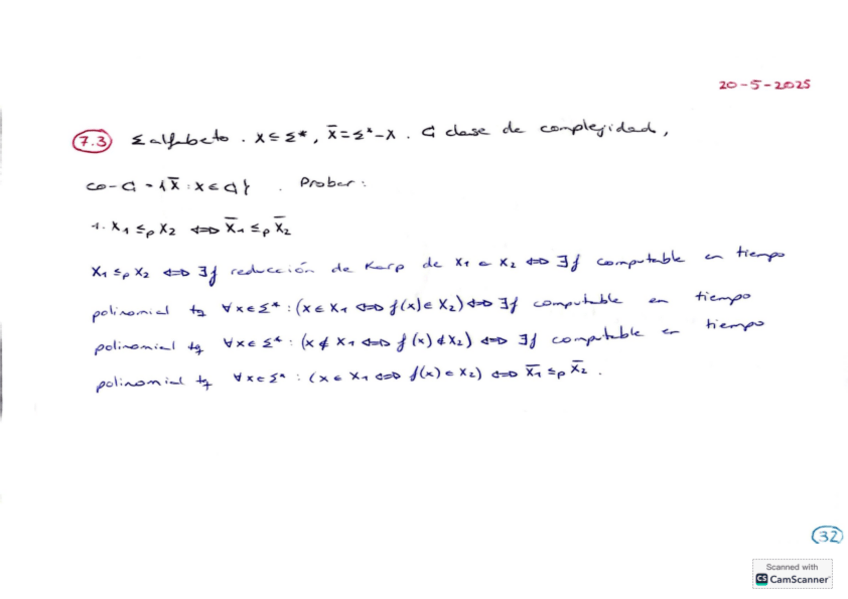 20-5-2025
7.3 Σ alfabeto. X ⊆ Σ*, X̄ = Σ* - X. C clase de complejidad,
co-C = {X̄ : X ∈ C}. Probar:
1. X₁ ≤p X₂ ⟺ X̄₁ ≤p X̄₂
X₁ ≤p X₂ ⟺ ∃f reducción de Karp de X₁ a X₂ ⟺ ∃f computable en tiempo
polinomial tq ∀x∈Σ* : (x ∈ X₁ ⟺ f(x) ∈ X₂) ⟺ ∃f computable en tiempo
polinomial tq ∀x∈Σ* : (x ∉ X₁ ⟺ f(x) ∉ X₂) ⟺ ∃f computable en tiempo
polinomial tq ∀x∈Σ* : (x ∈ X₁ ⟺ f(x) ∈ X₂) ⟺ X̄₁ ≤p X̄₂.
32
Scanned with
CS CamScanner